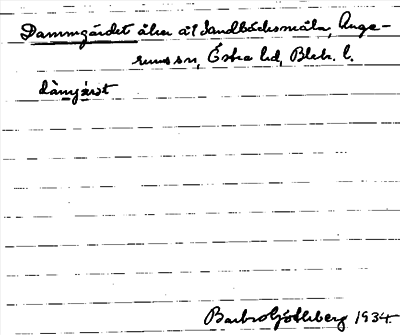 Dammgärdet åker åt Sandbäcksmåla, Ange-
rums sn, Östra hd, Blek. l.
dàmjæ̀ṣt
Barbro Götlberg 1934.